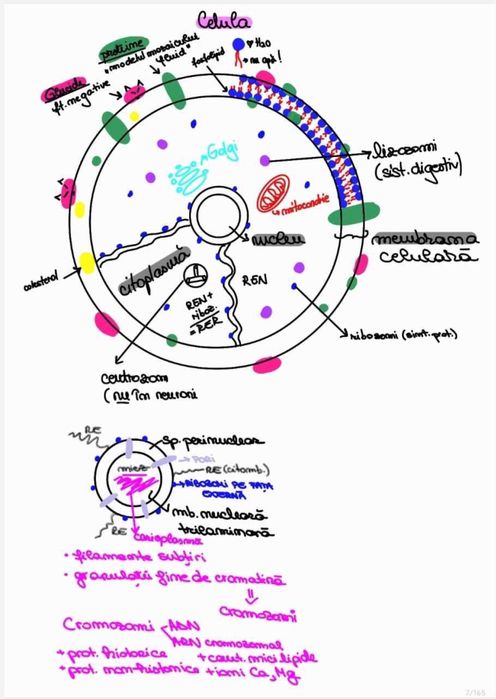 Celula
proteine
"modelul mozaicului
fluid"
fosfolipid
♥ H2O
+ nu apă!
Glucide
ft. negative
Golgi
lizozomi
(sist. digestiv)
mitocondrie
nucleu
membrana
celulară
citoplasmă
colesterol
REN
REN+
riboz.
=RER
ribozomi (sint. prot.)
centrozom
(nu în neuroni
RE
sp. perinuclear
PORI
RE (citomb.)
miez
RIBOZOMI PE FAȚA
EXTERNĂ
mb. nucleară
trilaminară
RE
Carioplasmă
• filamente subțiri
• granulații fine de cromatină
=
cromozomi
Cromozomi - ADN
ARN cromozomal
+ prot. histonice + cant. mici lipide
+ prot. non-histonice + ioni Ca, Mg
7/165